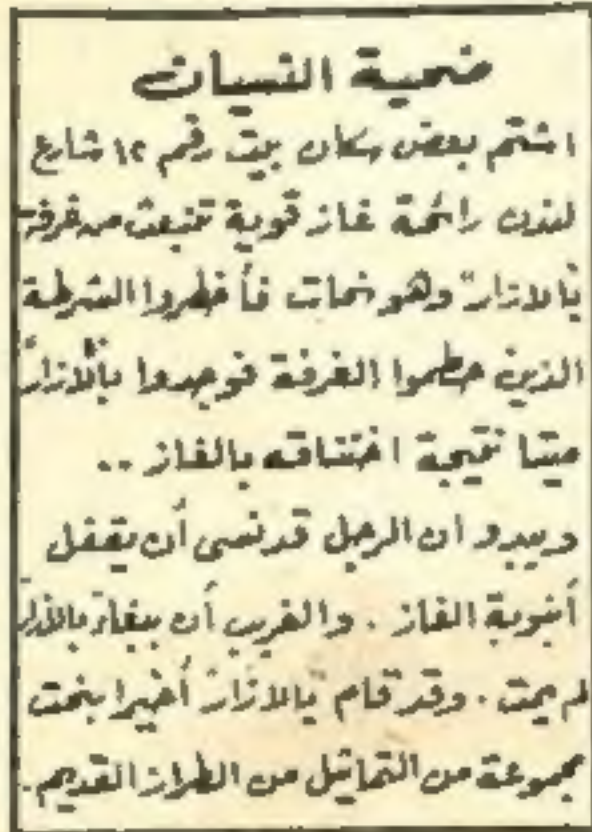 ضحية النسيان
اشتم بعض سكان بيت رقم ١٢ شارع
لندن رائحة غاز قوية تنبعث من غرفة
"بالازار" وهو نحات فأخطروا الشرطة
الذين حطموا الغرفة فوجدوا "بالازار"
ميتا نتيجة اختناقه بالغاز ..
ويبدو ان الرجل قد نسى أن يقفل
أنبوبة الغاز . والغريب أن ببغاء بالازار
لم يمت . وقد قام "بالازار" أخيرا بنحت
مجموعة من التماثيل من الطراز القديم .